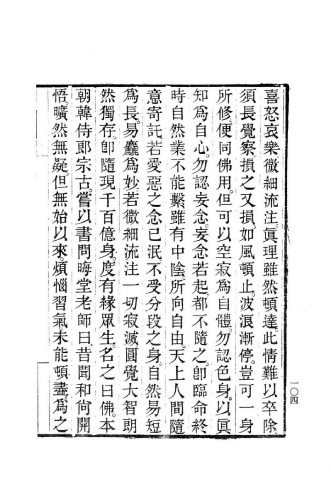 喜怒哀樂微細流注真理雖然頓達此情難以卒除
須長覺察損之又損如風頓止波浪漸停豈可一身
所修便同佛用但可以空寂爲自體勿認色身以真
知爲自心勿認妄念妄念若起都不隨之卽臨命終
時自然業不能繫雖有中陰所向自由天上人間隨
意寄託若愛惡之念已泯不受分段之身自然易短
爲長易麤爲妙若微細流注一切寂滅圓覺大智朗
然獨存卽隨現千百億身度有緣眾生名之曰佛本
朝韓侍郎宗古嘗以書問晦堂老師曰昔聞和尚開
悟曠然無疑但無始以來煩惱習氣未能頓盡爲之
一〇四